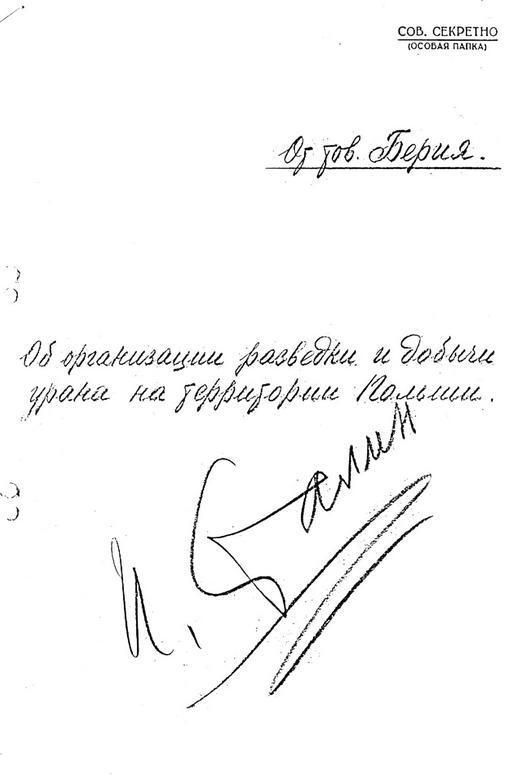 СОВ. СЕКРЕТНО
(ОСОБАЯ ПАПКА)
От тов. Берия.
Об организации разведки и добычи
урана на территории Польши.
И. Сталин